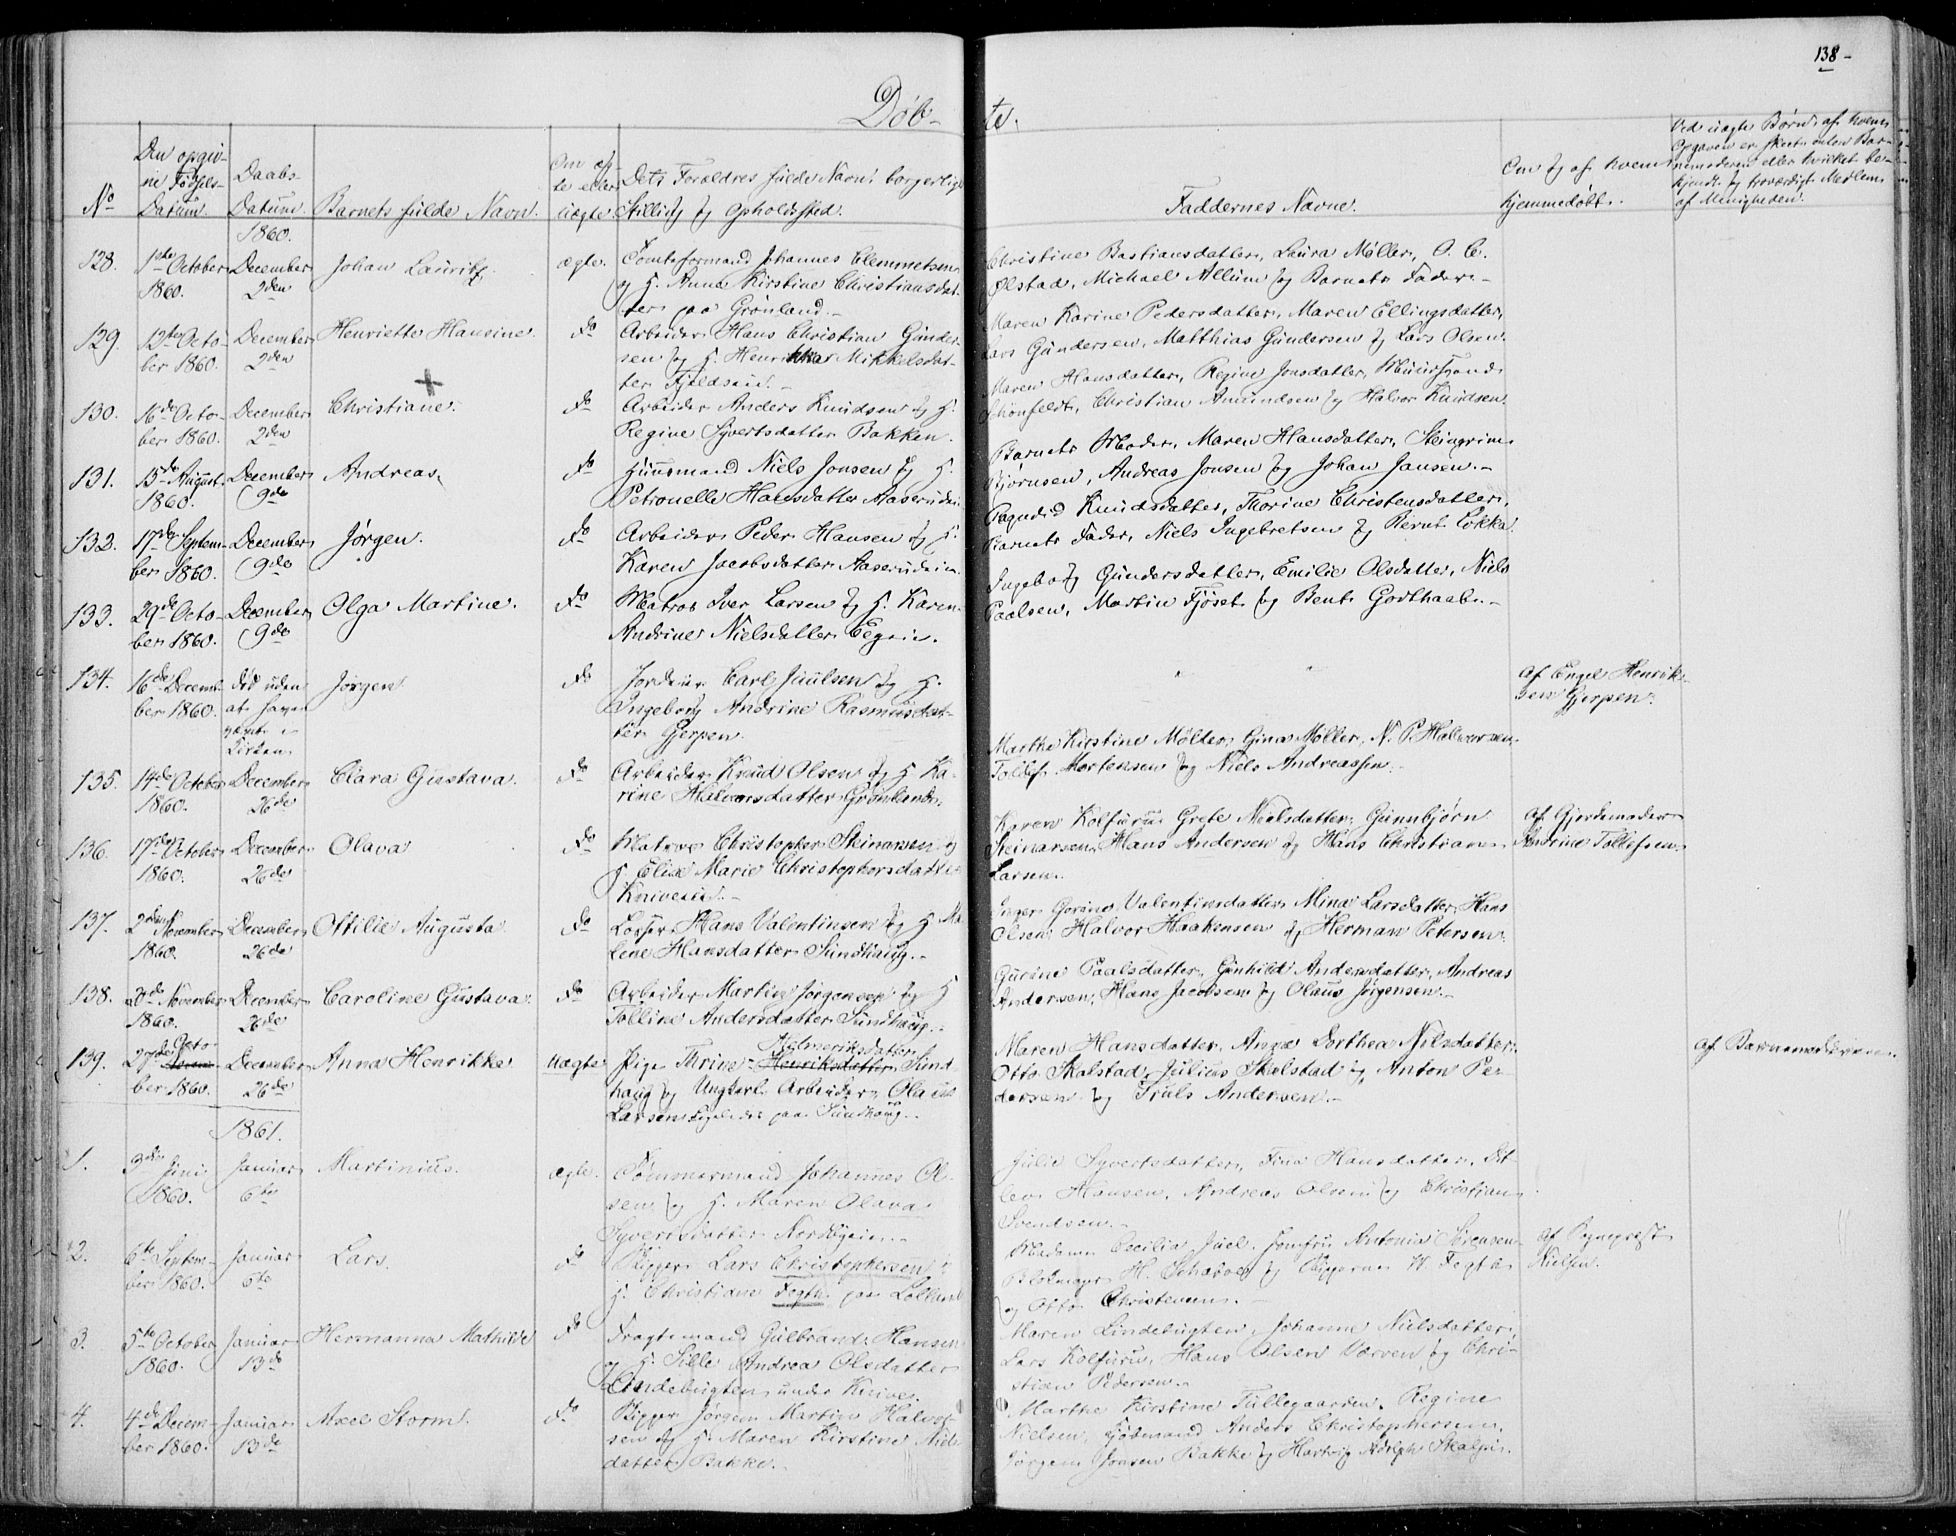 138-
Døb-
te.
No
Den opgiv-
ne Fødsels-
Datum.
Daabs
Datum.
Barnets fulde Navn.
Om æg-
te eller
uægte
Dets Forældres fulde Navn, borgerlige
Stilling og Opholdssted.
Faddernes Navne.
Om og af hvem
hjemmedøbt.
Ved uægte Børn, af hvem
Opgaven er skeet, enten Bar-
nemoderen eller hvilket be-
kjendt og troværdigt Medlem
af Menigheden.
1860.
128.
1ste October
1860.
December
2den
Johan Lauritz
ægte.
Tomteformand Johannes Clemmetsen
og H. Anne Kirstine Christiansdat-
ter paa Grønland.-
Christine Bastiansdatter, Laura Møller, O. C.
Ølstad, Michael Allum og Barnets Fader.-
129.
12te Octo-
ber 1860.
December
2den
Henriette Hansine.
Do
Arbeider Hans Christian Gunder-
sen og H. Henrikka Mikkelsdat-
ter Fjeldseie.-
Maren Karine Pedersdatter, Maren Ellingsdatter,
Lars Gundersen, Matthias Gundersen og Lars Olsen.
130.
16de Octo-
ber 1860.
December
2den
Christiane.
Do
Arbeider Anders Knudsen og H.
Regine Syvertsdatter Bakken.
Maren Hansdatter, Regine Jonsdatter, Muursvend
Schønfeldt, Christian Amundsen og Halvor Knudsen.
131.
15de August
1860.
December
9de
Andreas.
Do
Huusmand Niels Jonsen og H.
Petronelle Hansdatter Aaserudeie.
Barnets Moder, Maren Hansdatter, Steingrim
Bjørnsen, Andreas Jonsen og Johan Jansen.-
132.
17de Septem-
ber 1860.
December
9de
Jørgen.
Do
Arbeider Peder Hansen og H.
Karen Jacobsdatter Aaserudeie.
Ragndid Knudsdatter, Thorine Christensdatter,
Barnets Fader, Niels Ingebretsen og Bernt Løkka
133.
29de Octo-
ber 1860.
December
9de
Olga Martine.
Do
Matros Iver Larsen og H. Karen
Andrine Nielsdatter Eegeie.
Ingeborg Gundersdatter, Emilie Olsdatter, Niels
Paalsen, Martin Fjøset og Bent Godthaab.-
134.
16de Decem-
ber 1860.
død uden
at have
været i
Kirken.
Jørgen
Do
Jordeier Carl Juulsen og H.
Ingeborg Andrine Rasmusdat-
ter Gjerpen.
"
"
Af Engel Henrik-
sen Gjerpen.
135.
14de October
1860.
December
26de
Clara Gustava.
Do
Arbeider Knud Olsen og H. Ka-
rine Halvorsdatter Grønland.
Marthe Kirstine Møller, Gina Møller, N. P. Halvorsen,
Tollef Mortensen og Niels Andreassen.
136.
17de October
1860.
December
26de
Olava
Do
Matros Christopher Steinarsen og
H. Elise Marie Christophersdatter
Kniveseie.-
Karen Kolfurue Grete Nielsdatter, Gunnbjørn
Steinarsen, Hans Andersen og Hans Christian
Larsen.
Af Gjordemoder
Andrine Tollefsen.
137.
2den November
1860.
December
26de
Ottilie Augusta
Do
Losser Hans Valentinsen og H. Ma-
lene Hansdatter Sundhaug.-
Inger Gorine Valentinsdatter, Mina Larsdatter, Hans
Olsen, Halvor Haakensen og Herman Petersen.
138.
20de November
1860.
December
26de
Caroline Gustava.
Do
Arbeider Martin Jørgensen og H.
Tolline Andersdatter Sundhaug.-
Gurine Paalsdatter, Gunhild Andersdatter, Andreas
Andersen, Hans Jacobsen og Olaus Jørgensen.-
139.
27de Octo-
ber 1860.
December
26de
Anna Henrikke
Uægte
Pige Thrine Helmeriksdatter Sund-
haug og Ungkarl Arbeider Olaus
Larsen, ligeledes paa Sundhaug.-
Maren Hansdatter, Anne Dorthea Nilsdatter,
Otto Skalstad, Julius Skalstad og Anton Pe-
dersen og Truls Andersen.-
af Barnemoderen.
1861.
1.
3die Juni
1860.
Januar
6te
Martinius.
ægte.
Tømmermand Johannes Ol-
sen og H. Maren Olava
Syvertsdatter Nordbyeie.-
Julie Syvertsdatter, Tina Hansdatter, Dit-
lev Hansen, Andreas Olsen og Christian
Svendsen.-
2.
6te Septem-
ber 1860.
Januar
6te
Lars.
Do
Skipper Lars Christophersen og
H. Christiane Fegth paa Lolland
Madam Cecilia Juel, Jomfru Antonia Sørensen
Blokmager H. Schæboe og Skipperne W. Fegth
og Otto Christensen.-
af Sognepræst
Nielsen.
3.
5te October
1860.
Januar
13de
Hermanna Mathilde
Do
Fragtemand Gulbrand Hansen
og H. Sille Andrea Olsdatter
Lindebugten under Knive.
Maren Lindebugten, Johanne Nielsdatter,
Lars Kolfurue, Hans Olsen Værven og Chri-
stian Pedersen.-
4.
4de Decem-
ber 1860.
Januar
13de
Axel Storm.
Do
Skipper Jørgen Martin Halvor-
sen og H. Maren Kirstine Niels-
datter Bakke.-
Marthe Kirstine Tullegaarden, Regine
Nielsen, Kjøbmand Anders Christophersen,
Jørgen Jonsen Bakke og Hartvig Adolph Skalpie.